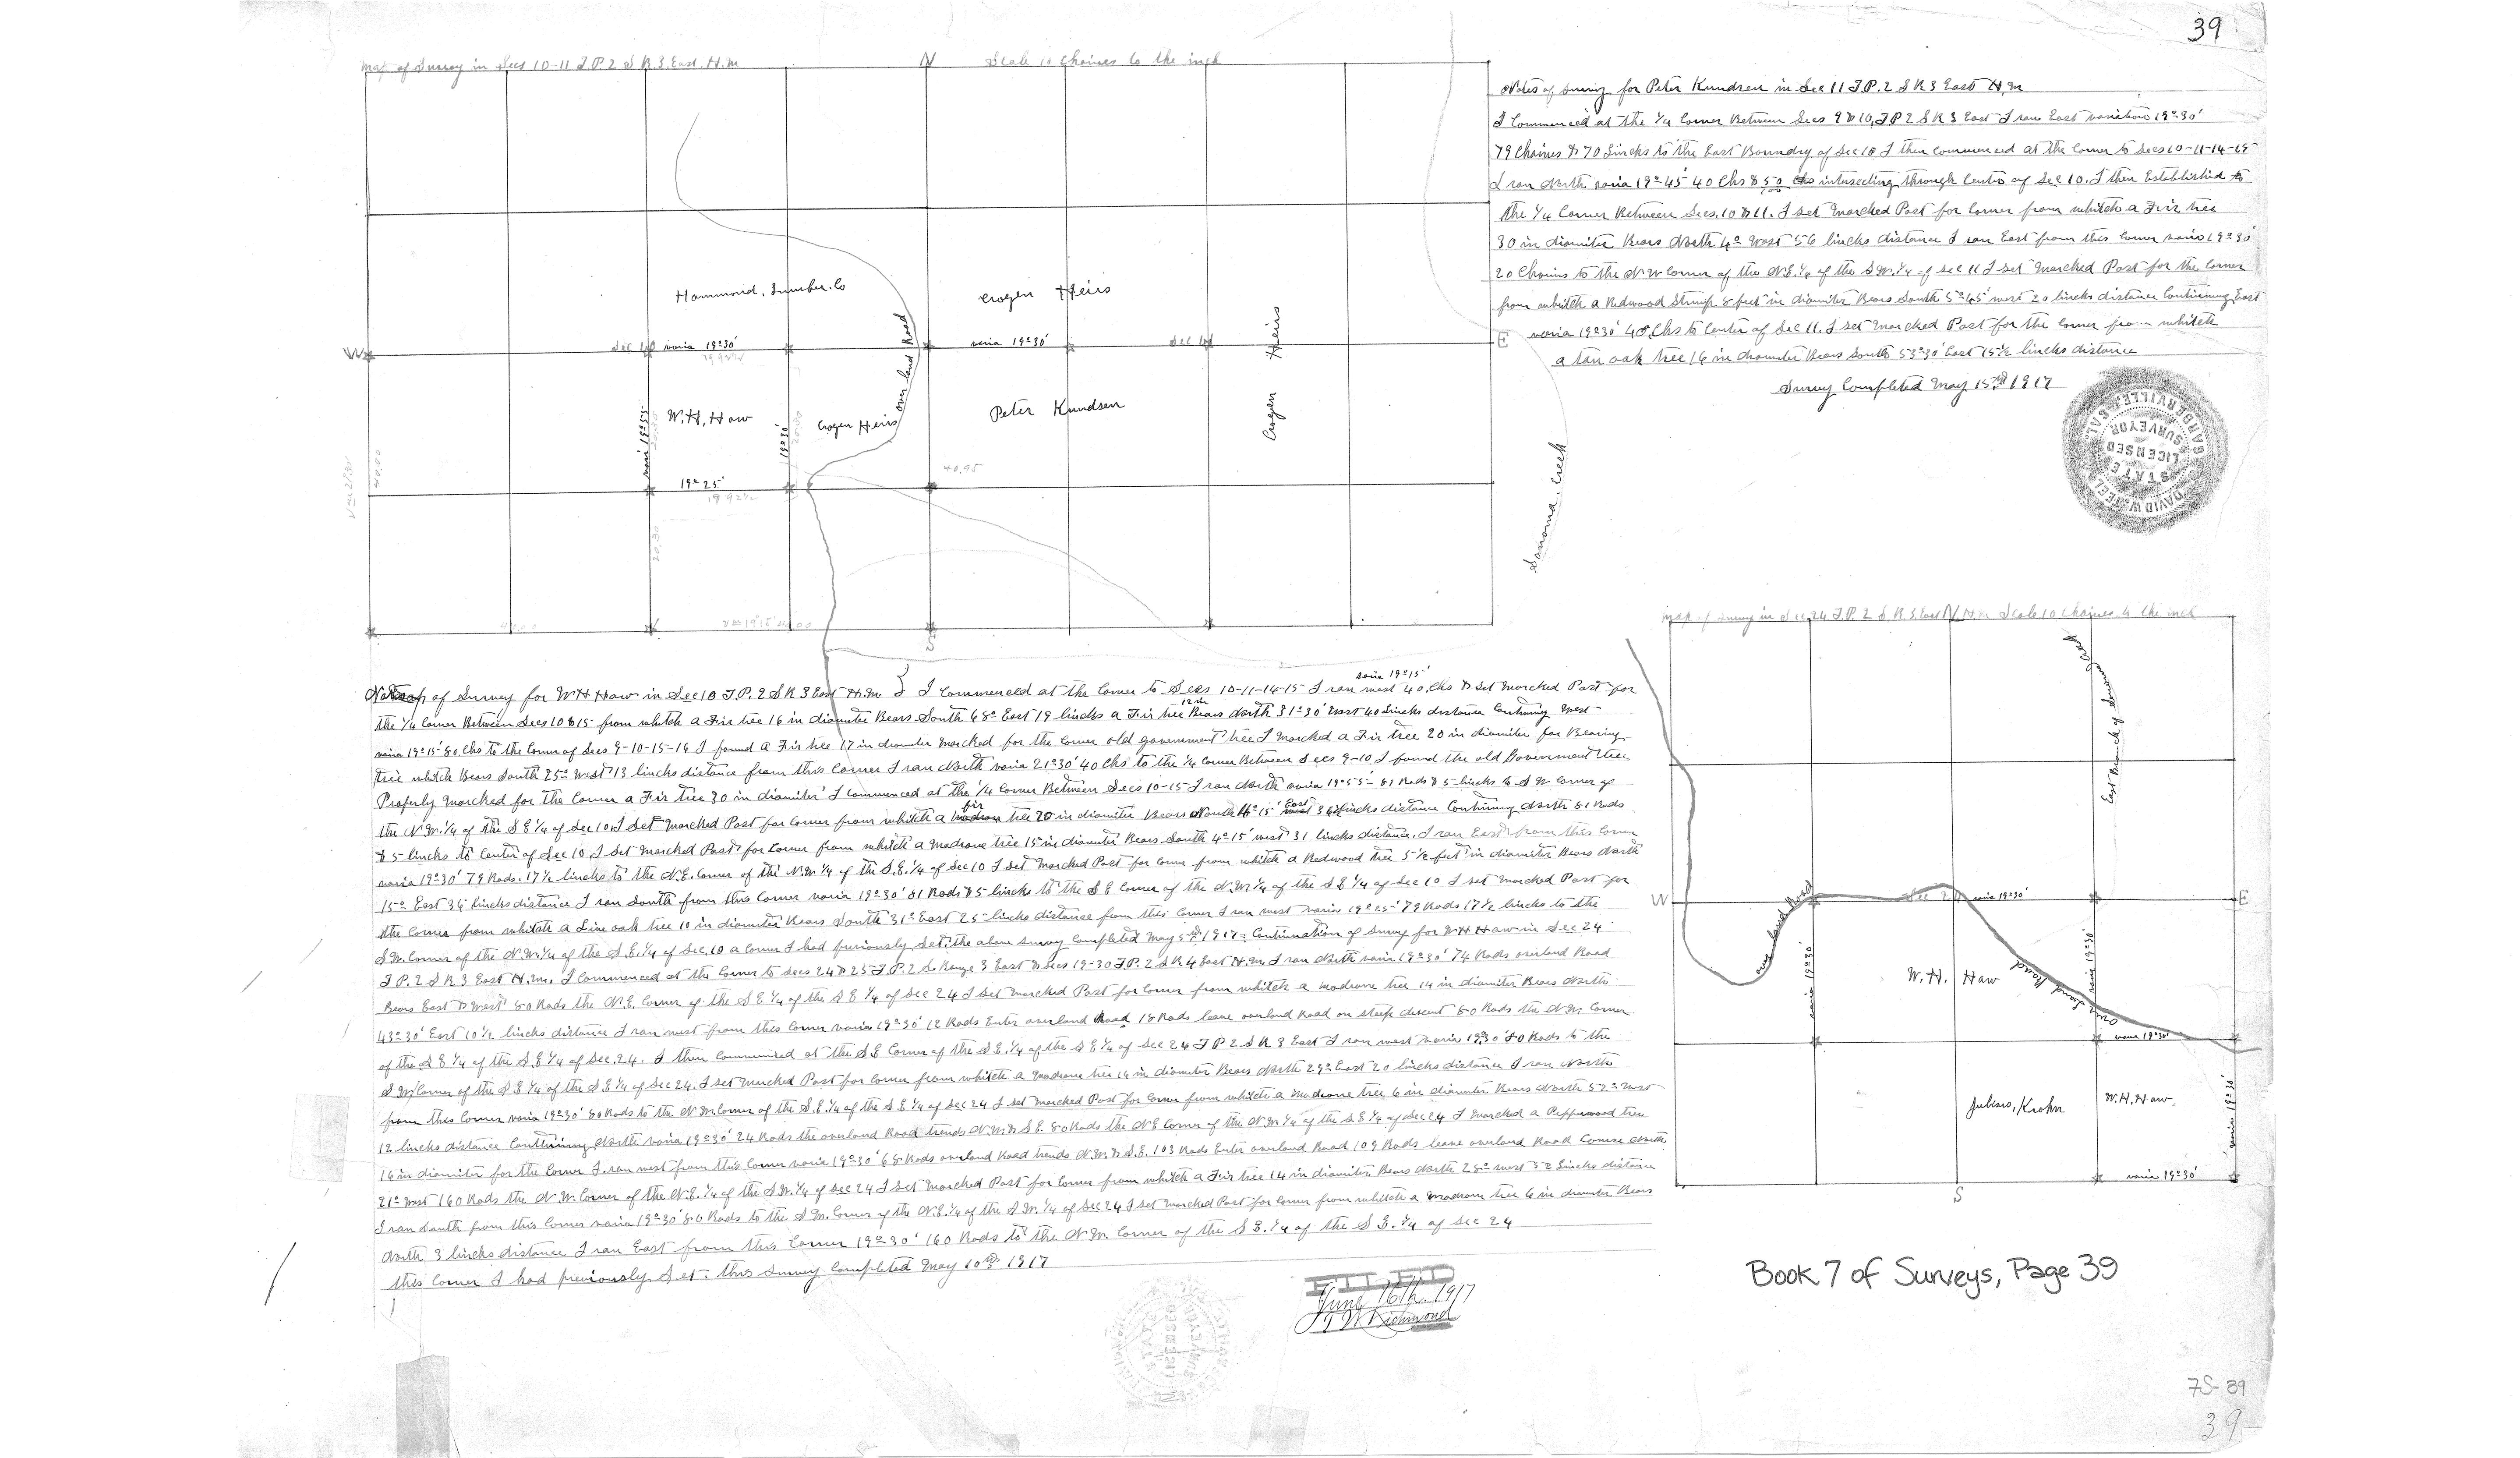 39
Map of Survey in Secs 10-11 T.P. 2 S R 3 East. H.M
N
Scale 10 Chaines to the inch
Hammond, Lumber. Co
Crogen Heirs
Crogen Heirs
over land Road
W
Sec 10 varia 19°30'
varia 19°30'
Sec 11
E
W. H. Haw
Crogen Heirs
Peter Kundsen
vari 19°55'
19°30'
40.95
19°25'
19 92½
20.30
40.00
S
Sonoma, Creek
Notes of Survey for Peter Kundsen in Sec 11 T.P. 2 S R 3 East H.M
I Commenced at the ¼ Corner Between Secs 9 & 10, T P 2 S R 3 East I ran East variation 19°30'
79 Chaines & 70 Lincks to the East Boundry of Sec 10 I then Commenced at the Corner to Secs 10-11-14-15
I ran North varia 19°45' 40 Chs & 50 intersecting through Center of Sec 10. I then Established to
the ¼ Corner Between Secs. 10 & 11. I set Marcked Post for Corner from whitch a Fir tree
30 in diamiter Bears North 4° West 56 lincks distance I ran East from this Corner varia 19°30'
20 Chains to the N W Corner of the N.E. ¼ of the S.W. ¼ of Sec 11 I set Marcked Post for the Corner
from whitch a Redwood Stump 8 feet in diamiter Bears South 5°45' west 20 lincks distance Continuing East
varia 19°30' 40 Chs to Center of Sec 11. I set Marcked Post for the Corner from whitch
a tan oak tree 16 in diamiter Bears South 53°30' East 15½ lincks distance
Survey Completed May 15rd 1917
DAVID W. STATE LICENSED SURVEYOR GARBERVILLE, CAL.
Notes of Survey for W H Haw in Sec 10 T.P. 2 S R 3 East H.M. I Commenced at the Corner to Secs 10-11-14-15 I ran west varia 19°15' 40, Chs & set Marcked Post for
the ¼ Corner Between Secs 10 & 15 from whitch a Fir tree 16 in diamiter Bears South 68° East 19 lincks a Fir tree 12 in Bears North 31°30' West 40 Lincks distance Continuing West
varia 19°15' 80, Chs to the Corner of Secs 9-10-15-16 I found a Fir tree 17 in diamiter Marcked for the Corner old government tree I Marcked a Fir tree 20 in diamiter for Bearing
tree whitch Bears South 25° West 13 lincks distance from this Corner I ran North varia 21°30' 40 Chs to the ¼ Corner Between Secs 9-10 I found the old Government tree
Properly Marcked for the Corner a Fir tree 30 in diamiter I Commenced at the ¼ Corner Between Secs 10-15 I ran North varia 19°55' 81 Rods & 5 lincks to S W Corner of
the N.W. ¼ of the S E ¼ of Sec 10 I set Marcked Post for Corner from whitch a fir tree 20 in diamiter Bears North 4°15' East 34 lincks distance Continuing North 81 Rods
& 5 lincks to Center of Sec 10 I set Marcked Post for Corner from whitch a Madrone tree 15 in diamiter Bears South 4°15' west 31 lincks distance. I ran East from this Corner
varia 19°30' 79 Rods. 17½ lincks to the N.E. Corner of the N.W ¼ of the S.E. ¼ of Sec 10 I set Marcked Post for Corner from whitch a Redwood tree 5½ feet in diamiter Bears North
15° East 34 lincks distance I ran South from this Corner varia 19°30' 81 Rods & 5 lincks to the S E Corner of the N.W. ¼ of the S E ¼ of Sec 10 I set Marcked Post for
the Corner from whitch a Live oak tree 10 in diamiter Bears South 31° East 25 lincks distance from this Corner I ran west varia 19°25' 79 Rods 17½ lincks to the
S.W. Corner of the N.W. ¼ of the S.E. ¼ of Sec, 10 a Corner I had previously Set. the above survey Completed May 5rd 1917. Continuation of Survey for W H Haw in Sec 24
T P. 2 S R 3 East H.M. I Commenced at the Corner to Secs 24 & 25 T.P. 2 S. Range 3 East & Secs 19-30 T.P. 2 S R 4 East H.M. I ran North varia 19°30' 74 Rods overland Road
Bears East & West 80 Rods the N.E. Corner of the S E ¼ of the S E ¼ of Sec 24 I set Marcked Post for Corner from whitch a Madrone tree 14 in diamiter Bears North
43°30' East 10½ lincks distance I ran west from this Corner varia 19°30' 12 Rods Enter overland Road 18 Rods leave overland Road on steep descent 80 Rods the N.W. Corner
of the S E ¼ of the S.E. ¼ of Sec. 24. I then Commenced at the S E Corner of the S E. ¼ of the S E ¼ of Sec 24 T P 2 S R 3 East I ran west varia 19°30' 80 Rods to the
S W Corner of the S E ¼ of the S.E. ¼ of Sec 24. I set Marcked Post for Corner from whitch a Madrone tree 14 in diamiter Bears North 29° East 20 lincks distance I ran North
from this Corner varia 19°30' 80 Rods to the N W Corner of the S.E. ¼ of the S E ¼ of Sec 24 I set Marcked Post for Corner from whitch a Madrone tree 6 in diamiter Bears North 52° West
12 lincks distance Continuing North varia 19°30' 24 Rods the overland Road trends N.W. & S E. 80 Rods the N E Corner of the N.W. ¼ of the S E ¼ of Sec 24 I Marcked a Pepperwood tree
16 in diamiter for the Corner I ran west from this Corner varia 19°30' 68 Rods overland Road trends N.W. & S.E. 103 Rods Enter overland Road 109 Rods leave overland Road Course North
21° West 160 Rods the N.W. Corner of the N.E. ¼ of the S.W. ¼ of Sec 24 I set Marcked Post for Corner from whitch a Fir tree 14 in diamiter Bears North 28° west 52 lincks distance
I ran South from this Corner varia 19°30' 80 Rods to the S W. Corner of the N.E. ¼ of the S.W. ¼ of Sec 24 I set Marcked Post for Corner from whitch a Madrone tree 6 in diamiter Bears
North 3 lincks distance I ran East from this Corner 19°30' 160 Rods to the N.W. Corner of the S E. ¼ of the S E. ¼ of Sec 24
this Corner I had previously Set. this Survey Completed May 10rd 1917
FILED
June 16th 1917
Richmond
Map of Survey in Sec 24 T.P. 2 S R 3 East H.M Scale 10 Chaines to the inch
N
East Branch of Sonoma Creek
W
Sec 24
varia 19°30'
E
over land Road
varia 19°30'
W. H. Haw
over land Road
varia 19°30'
varia 19°30'
Julius, Krohn
W. H. Haw.
varia 19°30'
varia 19°30'
S
Book 7 of Surveys, Page 39
7S-39
39